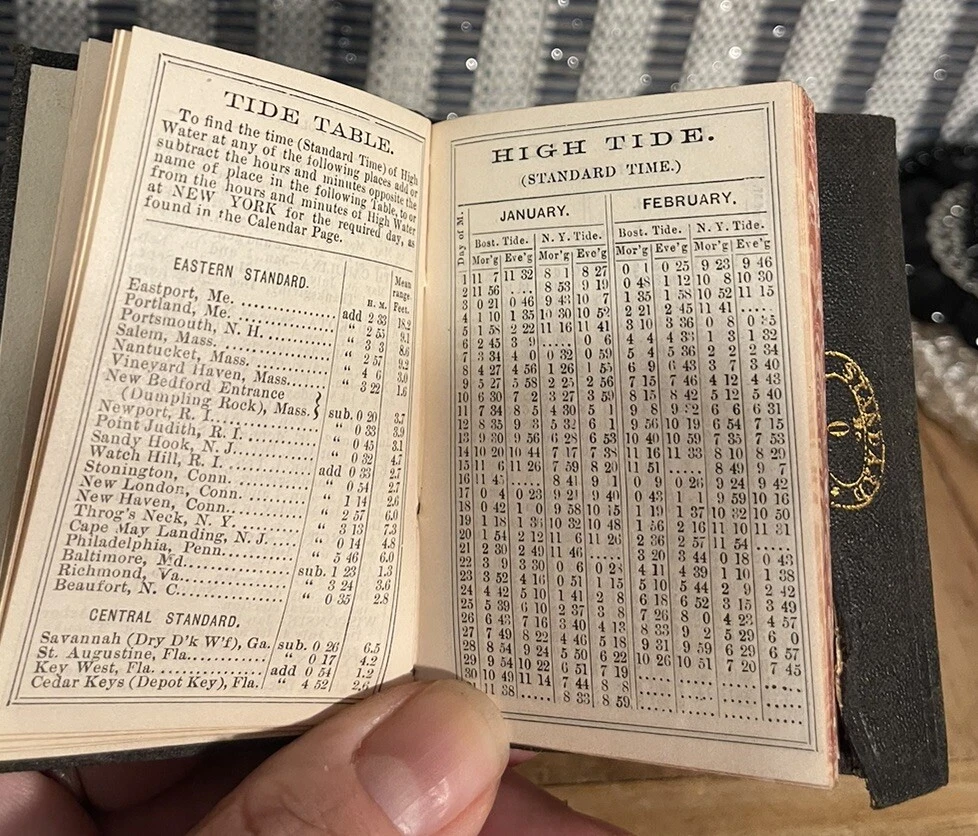 TIDE TABLE.
To find the time (Standard Time) of High
Water at any of the following places add or
subtract the hours and minutes opposite the
name of place in the following Table, to or
from the hours and minutes of High Water
at NEW YORK for the required day, as
found in the Calendar Page.
EASTERN STANDARD. H. M. Mean range. Feet.
Eastport, Me. .......... add 2 33 18.2
Portland, Me. .......... " 2 53 9.1
Portsmouth, N. H. .......... " 3 3 8.6
Salem, Mass. .......... " 2 57 9.2
Nantucket, Mass. .......... " 4 6 3.0
Vineyard Haven, Mass. .......... " 3 22 1.6
New Bedford Entrance
(Dumpling Rock), Mass. } sub. 0 20 3.7
Newport, R. I. .......... " 0 33 3.9
Point Judith, R. I. .......... " 0 45 3.1
Sandy Hook, N. J. .......... " 0 32 4.7
Watch Hill, R. I. .......... add 0 33 2.7
Stonington, Conn. .......... " 0 54 2.7
New London, Conn. .......... " 1 14 2.6
New Haven, Conn. .......... " 2 57 6.0
Throg's Neck, N. Y. .......... " 3 13 7.3
Cape May Landing, N. J. .......... " 0 14 4.8
Philadelphia, Penn. .......... " 5 46 6.0
Baltimore, Md. .......... sub. 1 23 1.3
Richmond, Va. .......... " 3 24 3.6
Beaufort, N. C. .......... " 0 35 2.8
CENTRAL STANDARD.
Savannah (Dry D'k W'f), Ga. sub. 0 26 6.5
St. Augustine, Fla. .......... " 0 17 4.2
Key West, Fla. .......... add 0 54 1.2
Cedar Keys (Depot Key), Fla. " 4 52 2.6
HIGH TIDE.
(STANDARD TIME.)
Day of M. JANUARY. FEBRUARY.
Bost. Tide. N. Y. Tide. Bost. Tide. N. Y. Tide.
Mor'g Eve'g Mor'g Eve'g Mor'g Eve'g Mor'g Eve'g
1 11 7 11 32 8 1 8 27 0 1 0 25 9 23 9 46
2 11 56 .... 8 53 9 19 0 48 1 12 10 8 10 30
3 0 21 0 46 9 43 10 7 1 35 1 58 10 52 11 15
4 1 10 1 35 10 30 10 52 2 21 2 45 11 41 ....
5 1 58 2 22 11 16 11 41 3 10 3 36 0 8 0 35
6 2 45 3 9 .... 0 4 4 4 4 33 1 3 1 32
7 3 34 4 0 0 32 0 59 5 4 5 36 2 2 2 34
8 4 27 4 56 1 26 1 55 6 9 6 43 3 7 3 40
9 5 27 5 58 2 25 2 56 7 15 7 46 4 12 4 43
10 6 30 7 2 3 27 3 59 8 15 8 42 5 12 5 40
11 7 34 8 5 4 30 5 1 9 8 9 32 6 6 6 31
12 8 35 9 3 5 32 6 1 9 56 10 19 6 54 7 15
13 9 30 9 56 6 28 6 53 10 40 10 59 7 35 7 53
14 10 20 10 44 7 17 7 38 11 16 11 33 8 10 8 29
15 11 6 11 26 7 59 8 20 11 51 .... 8 49 9 7
16 11 45 .... 8 41 9 1 0 9 0 26 9 24 9 42
17 0 4 0 23 9 21 9 40 0 43 1 1 9 59 10 16
18 0 42 1 0 9 58 10 15 1 19 1 37 10 32 10 50
19 1 18 1 36 10 32 10 48 1 56 2 16 11 10 11 31
20 1 54 2 12 11 6 11 26 2 36 2 57 11 54 ....
21 2 30 2 49 11 46 .... 3 20 3 44 0 18 0 43
22 3 9 3 30 0 6 0 28 4 11 4 39 1 10 1 38
23 3 52 4 16 0 51 1 15 5 10 5 44 2 9 2 42
24 4 42 5 10 1 41 2 8 6 18 6 52 3 15 3 49
25 5 39 6 10 2 37 3 8 7 26 8 0 4 23 4 57
26 6 43 7 16 3 40 4 13 8 33 9 2 5 29 6 0
27 7 49 8 22 4 46 5 18 9 31 9 59 6 29 6 57
28 8 54 9 24 5 50 6 22 10 26 10 51 7 20 7 45
29 9 54 10 22 6 51 7 19 .... .... .... ....
30 10 49 11 14 7 44 8 8 .... .... .... ....
38 .... 8 33 8 59 .... .... .... ....
STANDARD